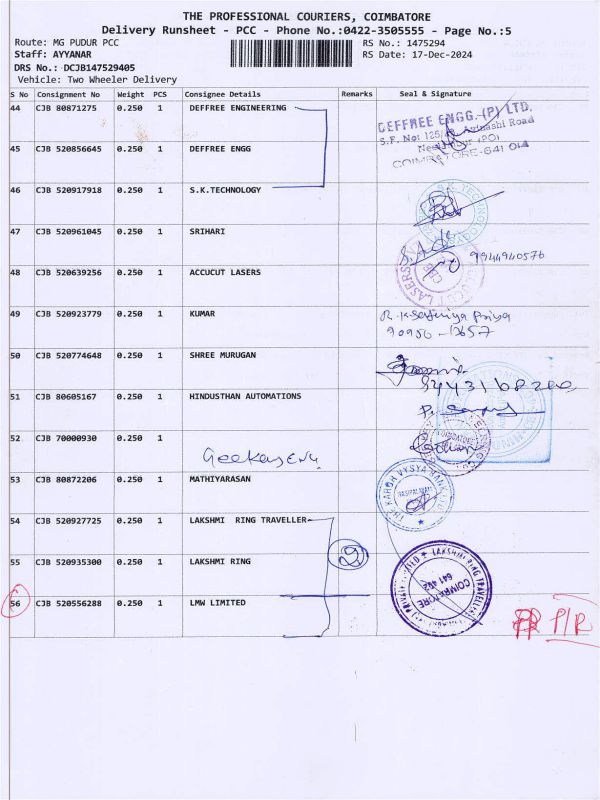 THE PROFESSIONAL COURIERS, COIMBATORE
Delivery Runsheet - PCC - Phone No.:0422-3505555 - Page No.:5
Route: MG PUDUR PCC RS No.: 1475294
Staff: AYYANAR RS Date: 17-Dec-2024
DRS No.: DCJB147529405
Vehicle: Two Wheeler Delivery
S No Consignment No Weight PCS Consignee Details Remarks Seal & Signature
44 CJB 80871275 0.250 1 DEFFREE ENGINEERING
DEFFREE ENGG. (P) LTD.
COIMBATORE-641 014
45 CJB 520856645 0.250 1 DEFFREE ENGG
46 CJB 520917918 0.250 1 S.K.TECHNOLOGY
47 CJB 520961045 0.250 1 SRIHARI
9944940576
48 CJB 520639256 0.250 1 ACCUCUT LASERS
49 CJB 520923779 0.250 1 KUMAR
50 CJB 520774648 0.250 1 SHREE MURUGAN
51 CJB 80605167 0.250 1 HINDUSTHAN AUTOMATIONS
52 CJB 70000930 0.250 1
53 CJB 80872206 0.250 1 MATHIYARASAN
THE KARUR VYSYA BANK LTD
54 CJB 520927725 0.250 1 LAKSHMI RING TRAVELLER
55 CJB 520935300 0.250 1 LAKSHMI RING
LAKSHMI RING TRAVELLERS
COIMBATORE
641 402
56 CJB 520556288 0.250 1 LMW LIMITED
P/R